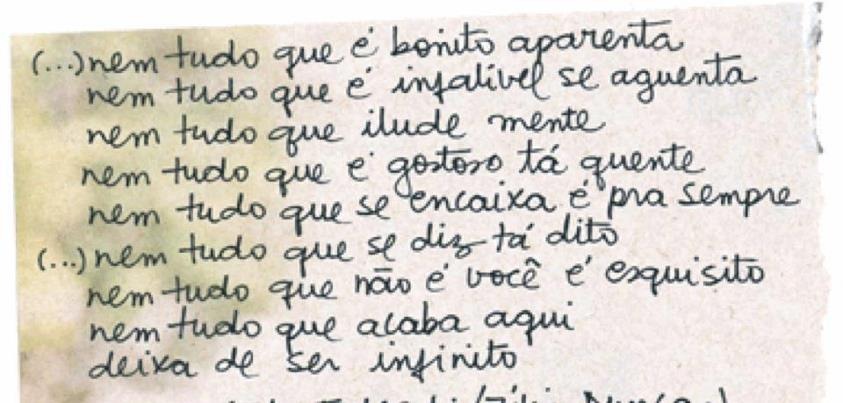 (...) nem tudo que é bonito aparenta
nem tudo que é infalível se aguenta
nem tudo que ilude mente
nem tudo que é gostoso tá quente
nem tudo que se encaixa é pra sempre
(...) nem tudo que se diz tá dito
nem tudo que não é você é esquisito
nem tudo que acaba aqui
deixa de ser infinito